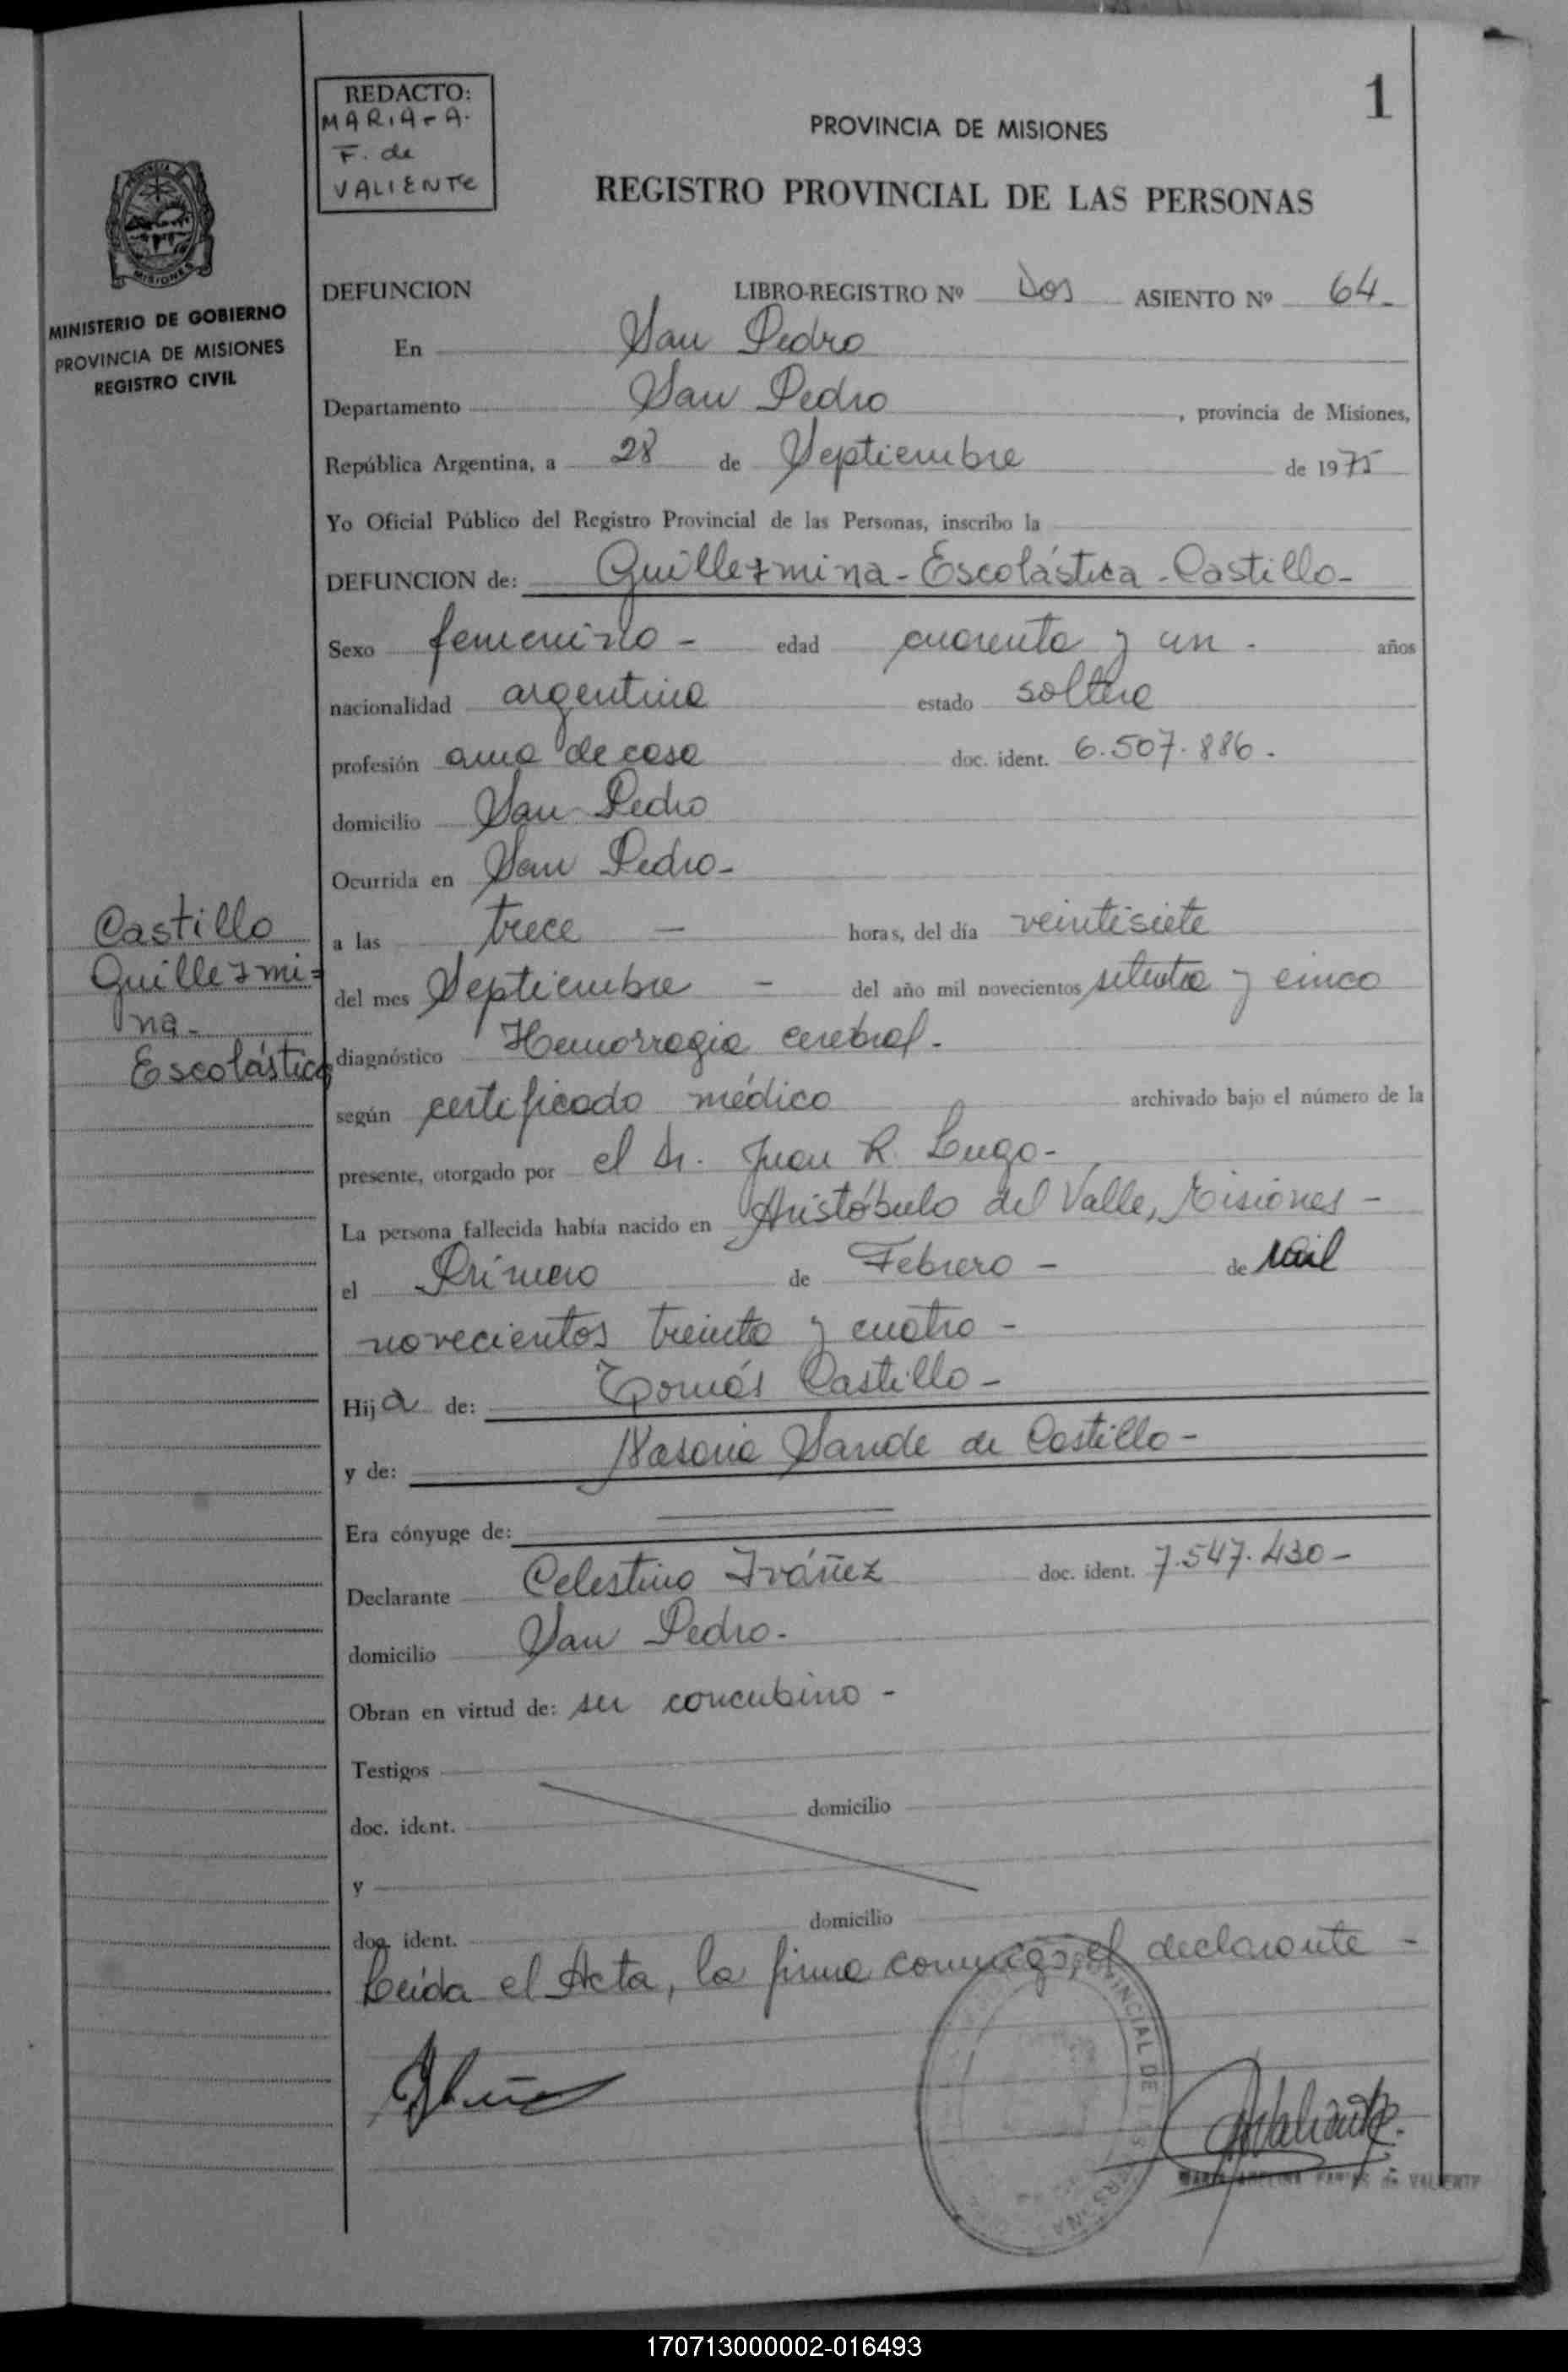 REDACTO:
MARIA - A.
F. de
VALIENTE
1
PROVINCIA DE MISIONES
REGISTRO PROVINCIAL DE LAS PERSONAS
MISIONES
MINISTERIO DE GOBIERNO
PROVINCIA DE MISIONES
REGISTRO CIVIL
DEFUNCION LIBRO-REGISTRO Nº Dos ASIENTO Nº 64-
En San Pedro
Departamento San Pedro, provincia de Misiones,
República Argentina, a 28 de Septiembre de 1975
Yo Oficial Público del Registro Provincial de las Personas, inscribo la
DEFUNCION de: Guillermina - Escolástica - Castillo-
Sexo femenino - edad cuarenta y un - años
nacionalidad argentina estado soltera
profesión ama de casa doc. ident. 6.507.886.
domicilio San Pedro
Ocurrida en San Pedro-
Castillo
Guillermi=
na-
Escolástica
a las trece - horas, del día veintisiete
del mes Septiembre - del año mil novecientos setenta y cinco
diagnóstico Hemorragia cerebral.
según certificado médico archivado bajo el número de la
presente, otorgado por el Dr. Juan R. Lugo-
La persona fallecida había nacido en Aristóbulo del Valle, Misiones -
el Primero de Febrero - de Mil
novecientos treinta y cuatro -
Hija de: Tomás Castillo -
y de: Sande de Castillo -
Era cónyuge de:
Declarante Celestino Iváñez doc. ident. 7.547.430-
domicilio San Pedro.
Obran en virtud de: ser concubino -
Testigos
doc. ident. domicilio
y
doc. ident. domicilio
Leida el Acta, la firma conmigo, el declarante -
VINCIAL DE LAS PERSONAS
Valiente
de VALIENTE
170713000002-016493